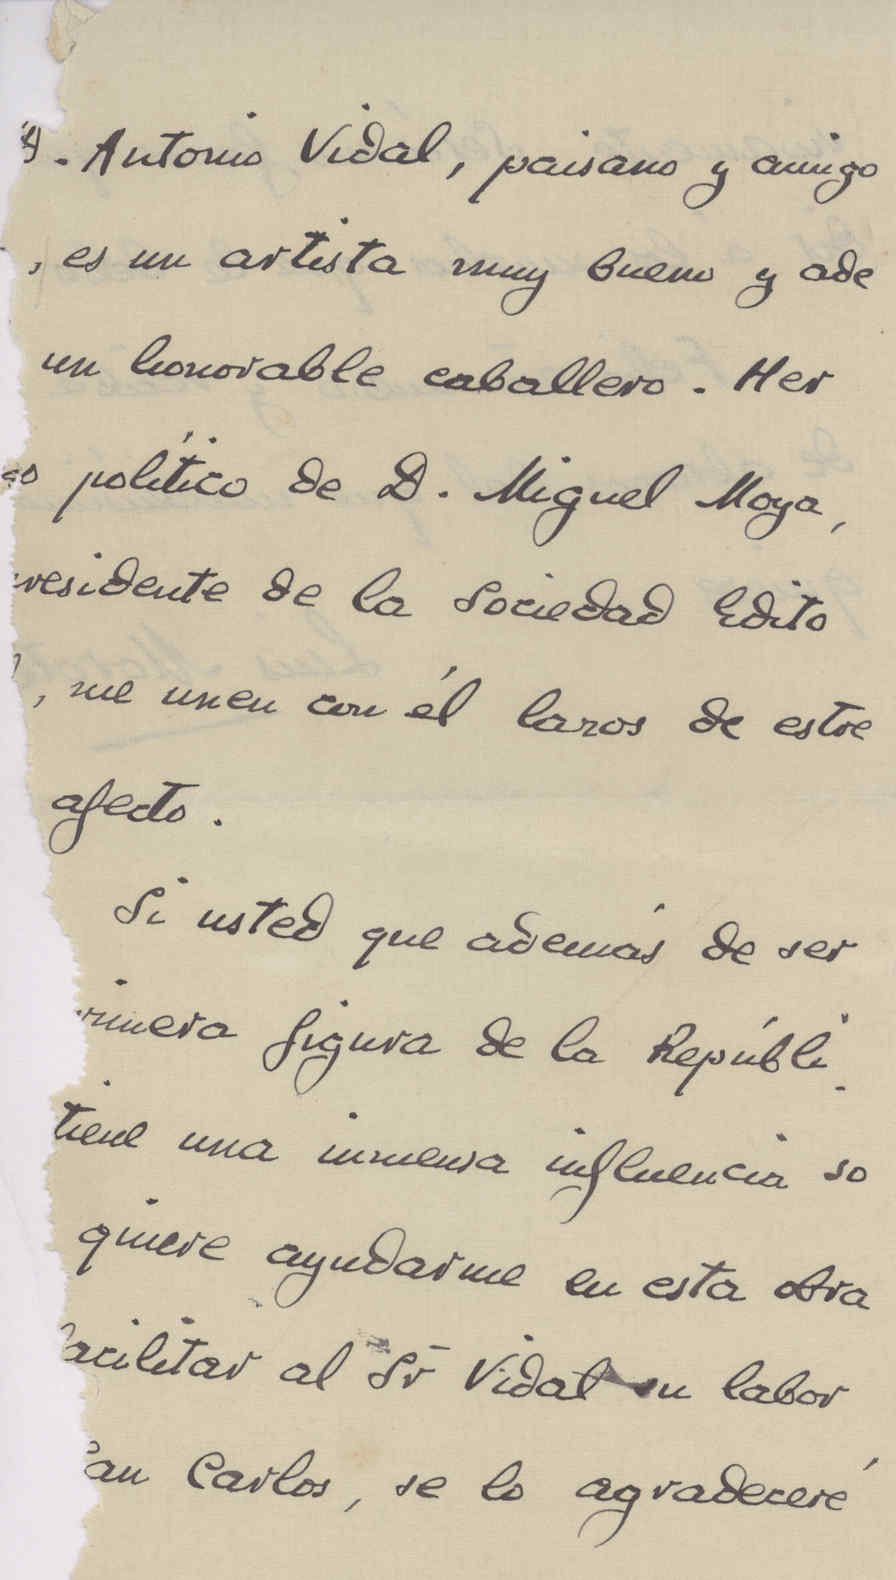 D. Antonio Vidal, paisano y amigo
, es un artista muy bueno y ade
un honorable caballero. Her
o político de D. Miguel Moya,
residente de la Sociedad Edito
, me unen con él lazos de estre
afecto.
Si usted que además de ser
rimera figura de la Repúbli
tiene una inmensa influencia so
quiere ayudarme en esta obra
acilitar al Sr Vidal su labor
an Carlos, se lo agradeceré